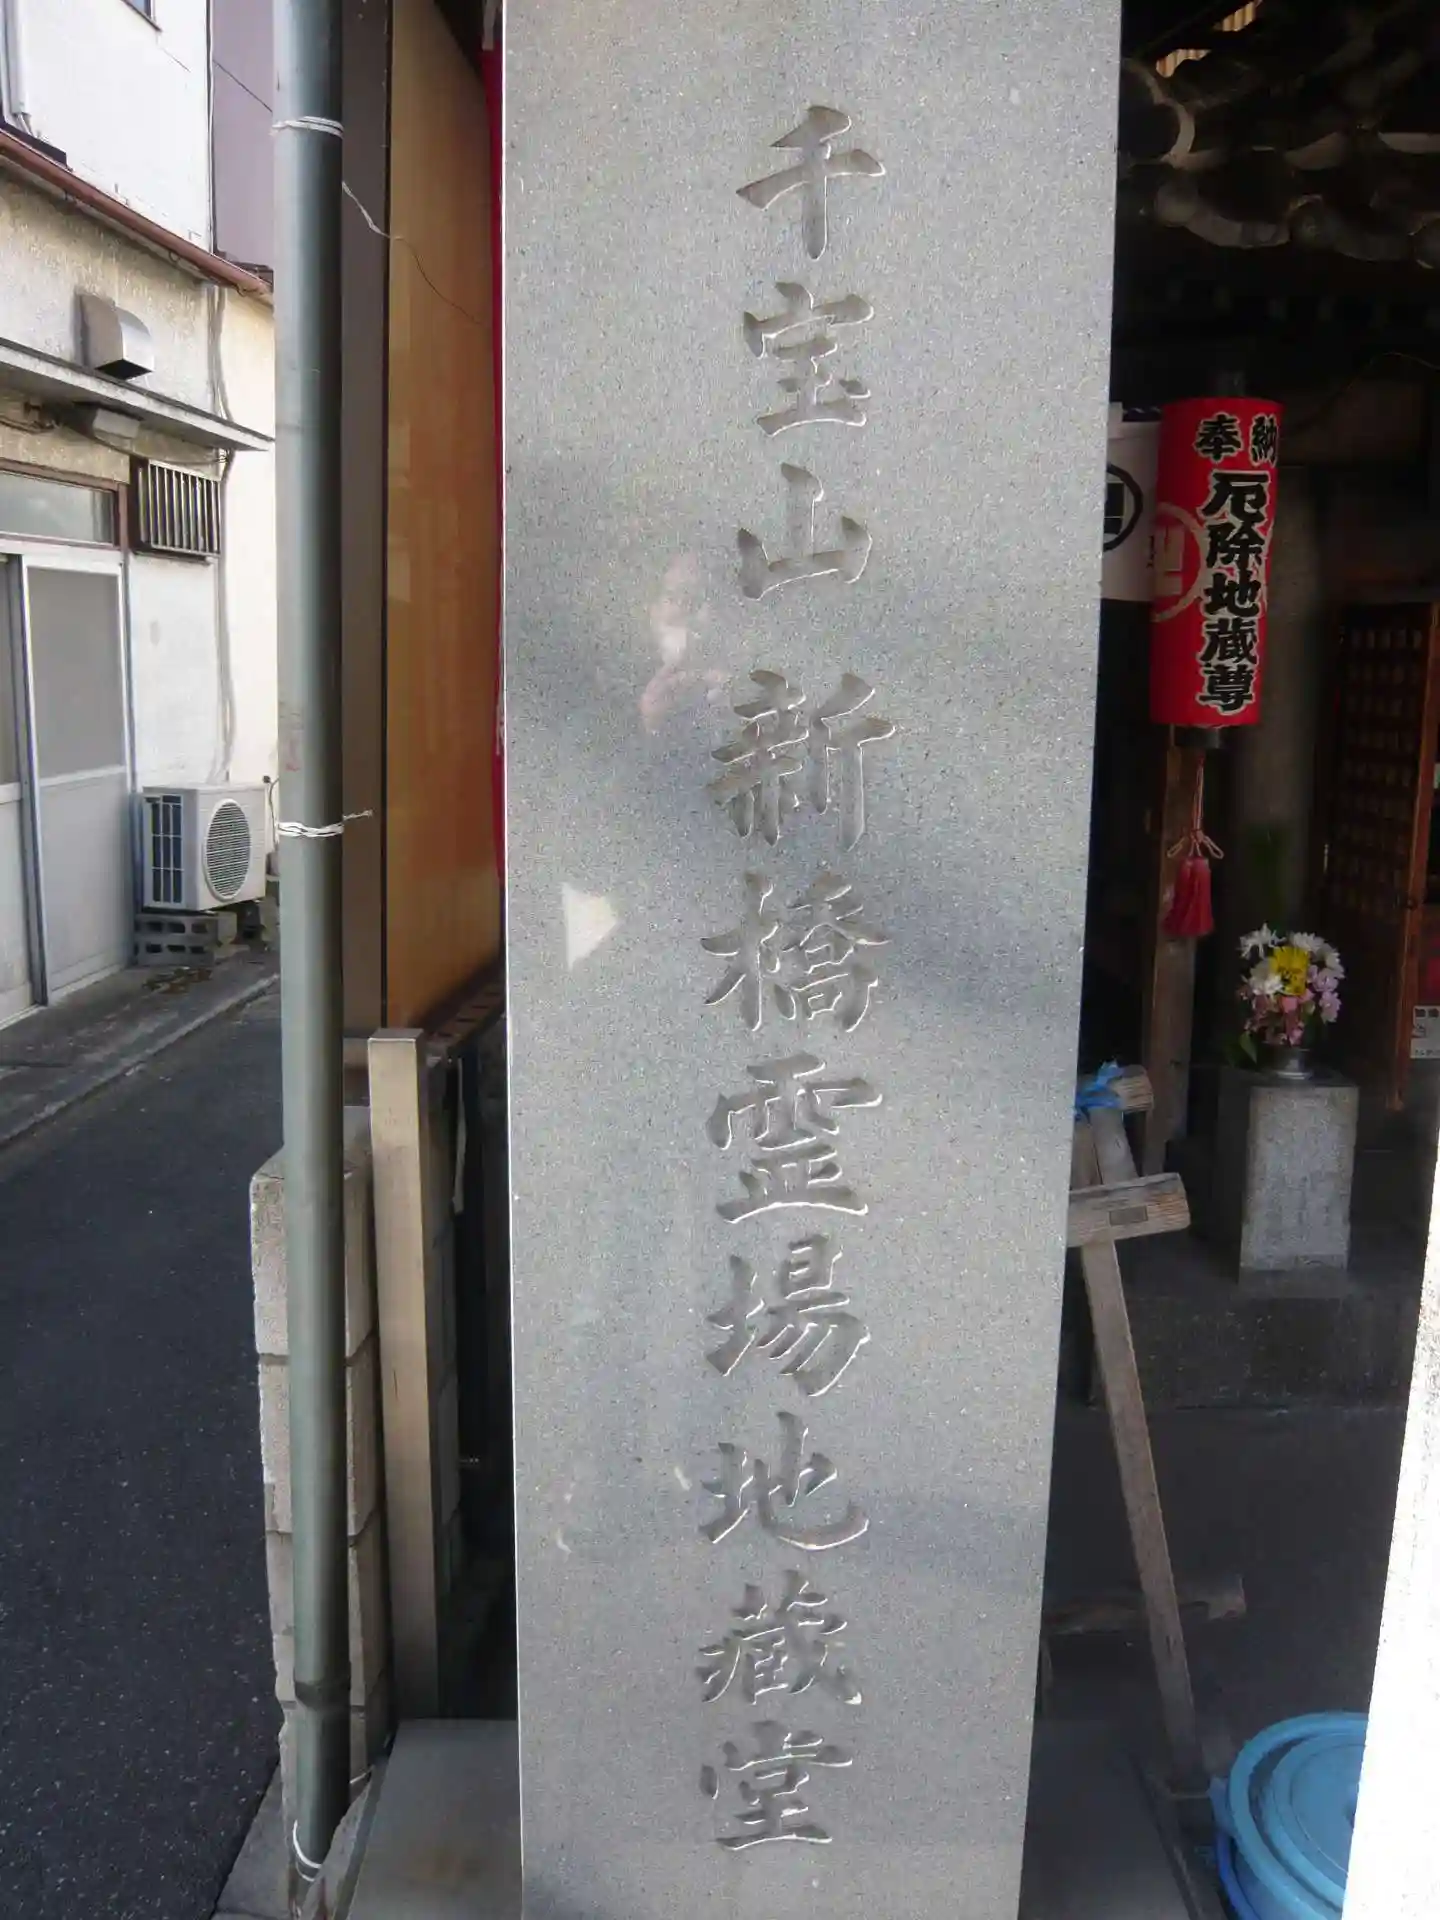 千宝山新橋霊場地蔵堂
奉納
厄除地蔵尊